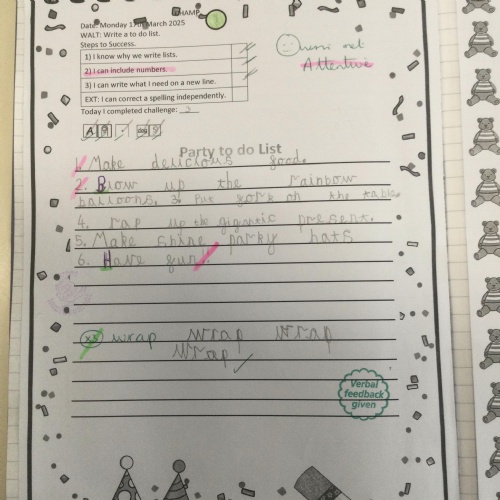 CHAMP
Date: Monday 17th March 2025
WALT: Write a to do list.
Steps to Success.
1) I know why we write lists.
2) I can include numbers.
3) I can write what I need on a new line.
EXT: I can correct a spelling independently.
Today I completed challenge: 3
Attentive
Party to do List
1. Make delicious food.
2. Blow up the rainbow
balloons. 3. Put fork on the table.
4. rap up the gigantic present.
5. Make shine parky hats
6. Have fun!
x3 wrap wrap wrap
wrap!
Verbal
feedback
given